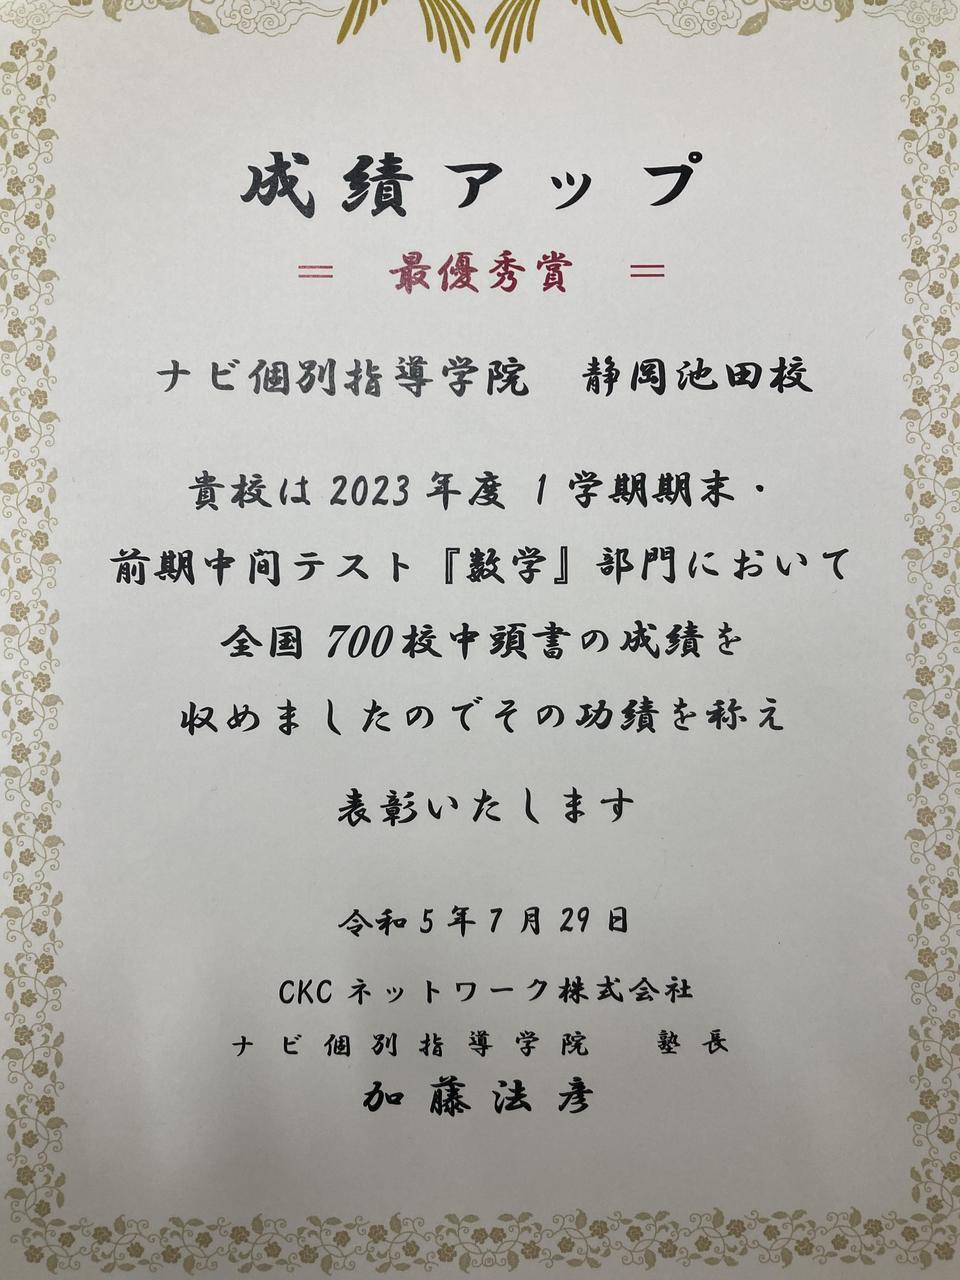 成績アップ
＝ 最優秀賞 ＝
ナビ個別指導学院　静岡池田校
貴校は2023年度 1学期期末・
前期中間テスト『数学』部門において
全国700校中頭書の成績を
収めましたのでその功績を称え
表彰いたします
令和5年7月29日
CKCネットワーク株式会社
ナビ個別指導学院　塾長
加藤法彦